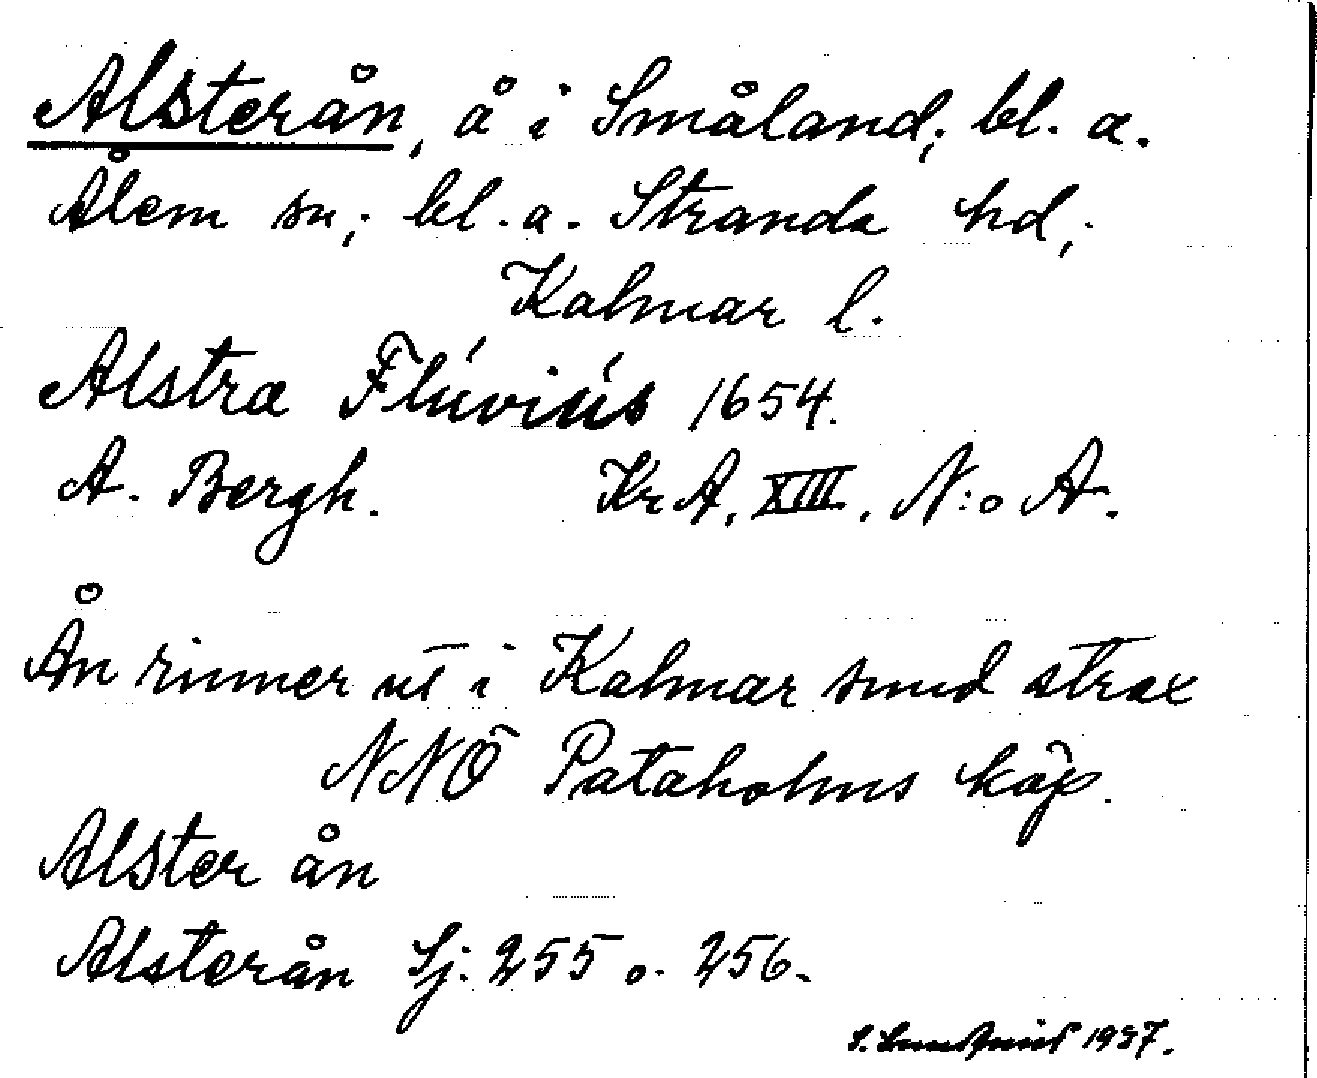 Alsterån, å i Småland; bl. a.
Ålem sn; bl. a. Stranda hd;
Kalmar l.
Alstra Flúviús 1654.
A. Bergh. KrA. XIII. N:o A.
Ån rinner ut i Kalmar sund strax
NNÖ Pataholms köp.
Alster ån
Alsterån Sj. 255 o. 256.
S. 1937.